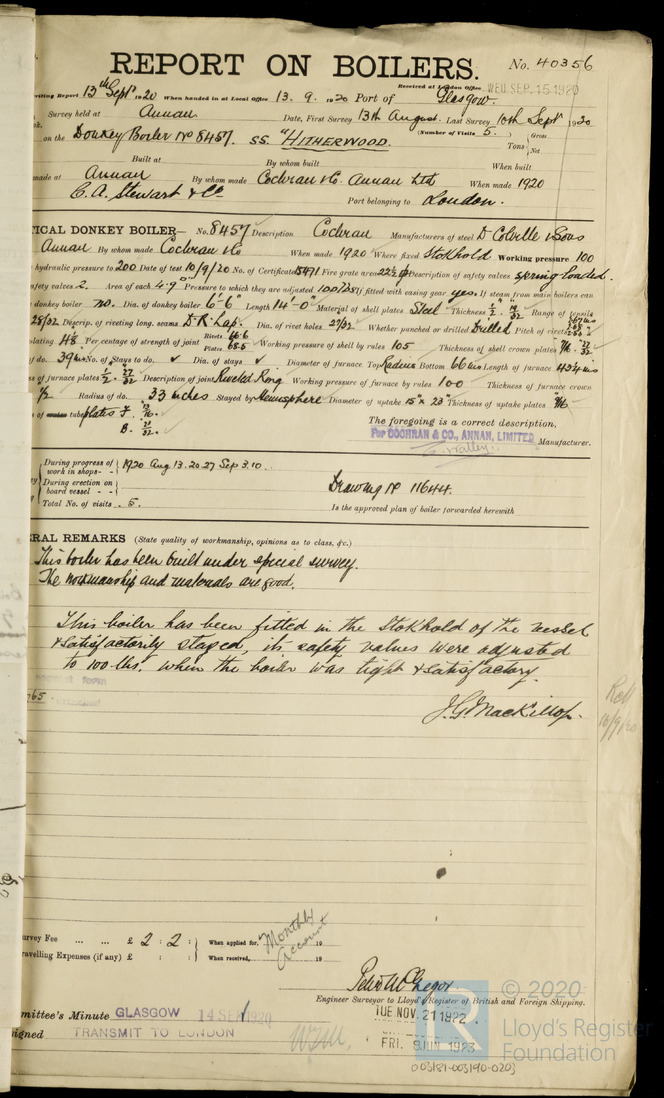 REPORT ON BOILERS.
No. 40356
Received at London Office WED. SEP. 15 1920
writing Report 13th Sept 1920 When handed in at Local Office 13. 9. 1920 Port of Glasgow.
Survey held at Annan Date, First Survey 13th August. Last Survey 10th Sept 1920
on the Donkey Boiler No 8457. SS. "HITHERWOOD. (Number of Visits 5.) Gross
Tons Net
Built at By whom built When built
made at Annan By whom made Cochran & Co. Annan Ltd When made 1920
C. A. Stewart & Co Port belonging to London.
ICAL DONKEY BOILER— No. 8457 Description Cochran Manufacturers of steel D Colville & Sons
Annan By whom made Cochran & Co When made 1920 Where fixed Stokhold Working pressure 100
hydraulic pressure to 200 Date of test 10/9/20 No. of Certificate 15471 Fire grate area Description of safety valves spring loaded.
afety valves 2. Area of each 4.9" Pressure to which they are adjusted If fitted with easing gear yes. If steam from main boilers can
donkey boiler no. Dia. of donkey boiler 6'-6" Length 14'-0" Material of shell plates Steel Thickness Range of tensile
28/32 Descrip. of riveting long. seams D.R. Lap. Dia. of rivet holes 27/32 Whether punched or drilled Drilled Pitch of rivets
plating 48 Per centage of strength of joint Rivets 66.6 Plates 68.5 Working pressure of shell by rules 105 Thickness of shell crown plates
of do. 39 ins No. of Stays to do. ✓ Dia. of stays ✓ Diameter of furnace Top Radius Bottom 66 ins Length of furnace
s of furnace plates Description of joint Riveted Ring Working pressure of furnace by rules 100 Thickness of furnace crown
1/2 Radius of do. 33 inches Stayed by Hemisphere Diameter of uptake 15" x 23" Thickness of uptake plates 9/16
of tube plates F.
B.
The foregoing is a correct description,
For COCHRAN & CO., ANNAN, LIMITED Manufacturer.
During progress of work in shops - - 1920 Aug 13. 20. 27 Sep 3. 10.
During erection on board vessel - - -
Total No. of visits 5.
Drawing No 11644.
Is the approved plan of boiler forwarded herewith
ERAL REMARKS (State quality of workmanship, opinions as to class, &c.)
This boiler has been built under special survey.
The workmanship and materials are good.
This boiler has been fitted in the Stokhold of the vessel
& satisfactorily stayed, its safety valves were adjusted
to 100 lbs. when the boiler was tight & satisfactory.
J.G. MacKillop.
urvey Fee ... ... £ 2 : 2 : When applied for, 19
Monthly Account
ravelling Expenses (if any) £ : : When received, 19
Peter McGregor
Engineer Surveyor to Lloyd's Register of British and Foreign Shipping.
mittee's Minute GLASGOW 14 SEP 1920
TUE NOV. 21 1922
igned TRANSMIT TO LONDON
FRI. 9 JUN 1923
© 2020
LR
Lloyd's Register
Foundation
003181-003190-0203